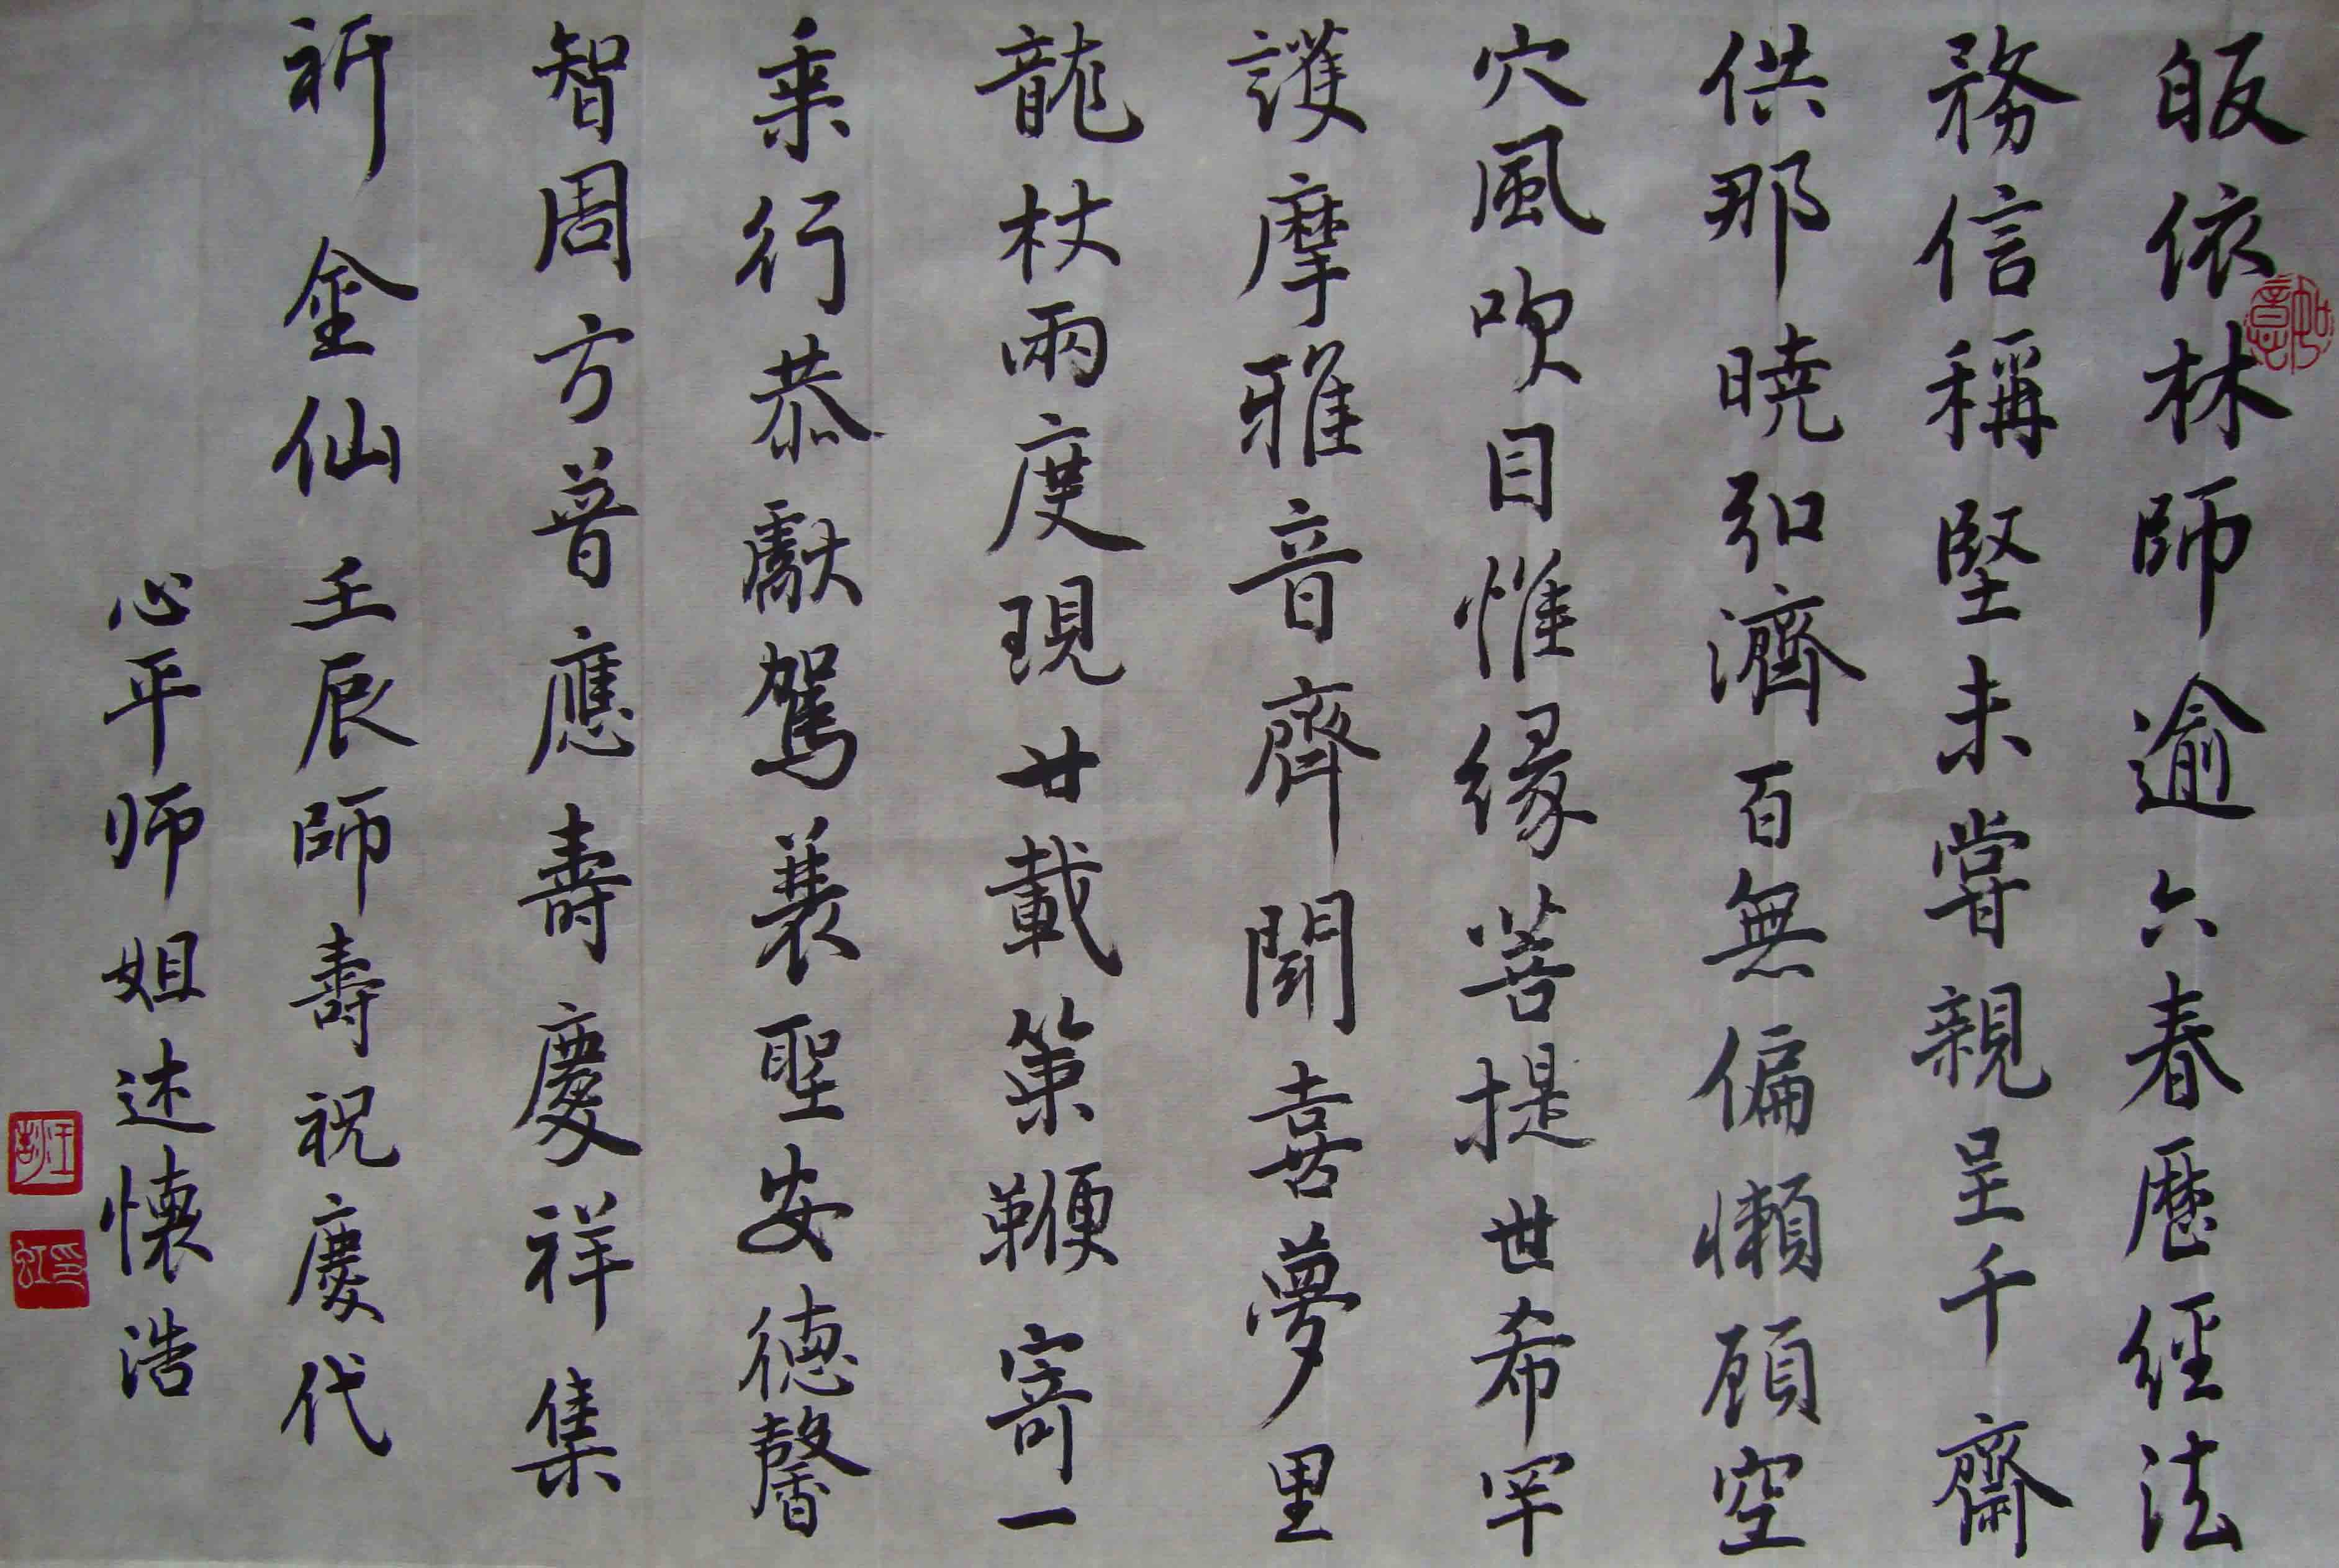 皈依林師逾六春歷經法
務信稱堅未嘗親呈千齋
供那曉弘濟百無偏懶顧空
穴風吹目惟緣菩提世希罕
護摩雅音齊聞喜夢里
龍杖兩度現廿載策鞭寄一
乘行恭獻駕裘聖安德馨
智周方普應壽慶祥集
祈金仙壬辰師壽祝慶代
心平师姐述懷浩
如意